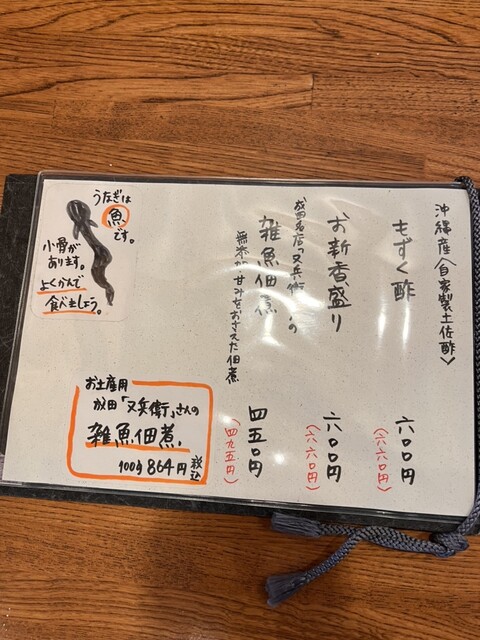 沖縄産〈自家製土佐酢〉
もずく酢
六００円
（六六０円）
お新香盛り
六００円
（六六０円）
成田名店「又兵衛」の
雑魚佃煮
無添加 甘みをおさえた佃煮
四五０円
（四九五円）
うなぎは
魚です。
小骨が
あります。
よくかんで
食べましょう。
お土産用
成田「又兵衛」さんの
雑魚佃煮。
100g 864円 税込